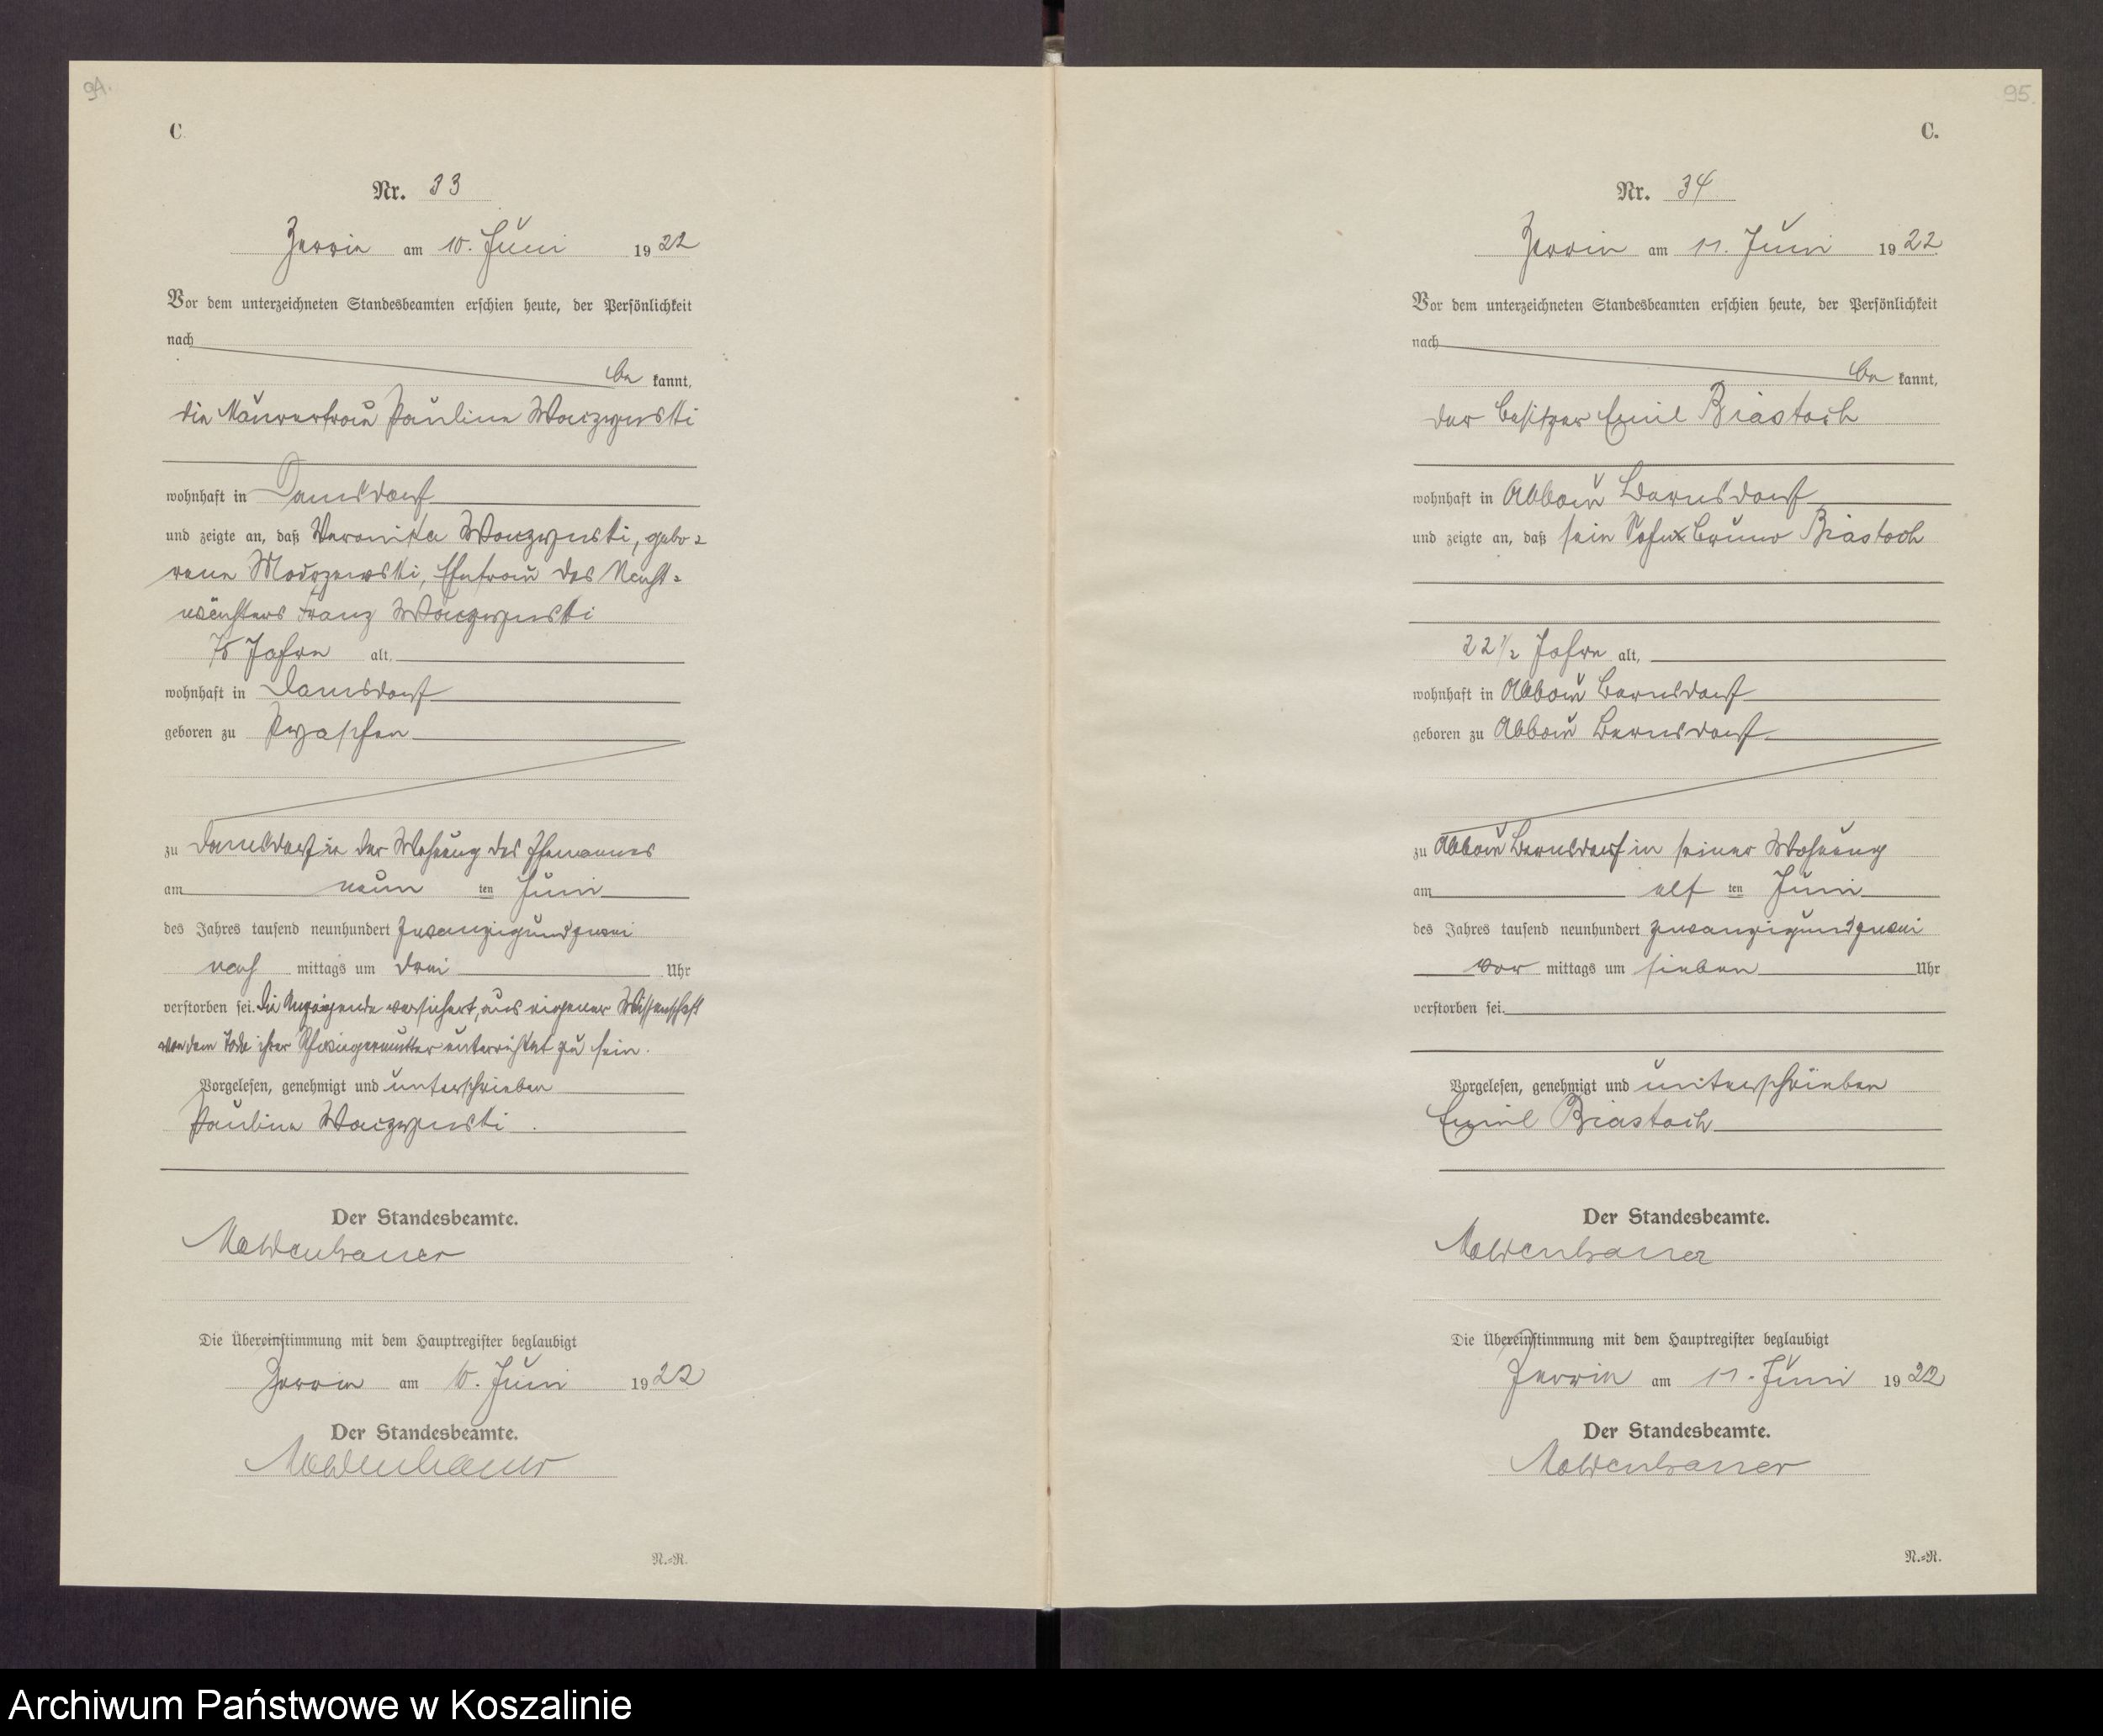 94.
C
Nr. 33
Zerrin am 10. Juni 1922
Vor dem unterzeichneten Standesbeamten erschien heute, der Persönlichkeit
nach
be kannt,
die Maurerfrau Pauline
wohnhaft in Damsdorf
und zeigte an, daß Veronika gebo-
rene Modrzewski, Ehefrau des Nacht-
wächters Franz
75 Jahre alt,
wohnhaft in Damsdorf
geboren zu
zu Damsdorf in der Wohnung des Ehemannes
am neun ten Juni
des Jahres tausend neunhundert zwanzigundzwei
nach mittags um drei Uhr
verstorben sei. Die Anzeigende versichert, aus eigener Wissenschaft
von dem Tode ihrer Schwiegermutter unterrichtet zu sein.
Vorgelesen, genehmigt und unterschrieben
Pauline
Der Standesbeamte.
Moldenhauer
Die Übereinstimmung mit dem Hauptregister beglaubigt
Zerrin am 10. Juni 1922
Der Standesbeamte.
Moldenhauer
N.=R.
95.
C.
Nr. 34
Zerrin am 11. Juni 1922
Vor dem unterzeichneten Standesbeamten erschien heute, der Persönlichkeit
nach
be kannt,
der Besitzer Emil Biastoch
wohnhaft in Abbau Bernsdorf
und zeigte an, daß sein Sohn Bruno Biastoch
22 1/2 Jahre alt,
wohnhaft in Abbau Bernsdorf
geboren zu Abbau Bernsdorf
zu Abbau Bernsdorf in seiner Wohnung
am elf ten Juni
des Jahres tausend neunhundert zwanzigundzwei
vor mittags um sieben Uhr
verstorben sei.
Vorgelesen, genehmigt und unterschrieben
Emil Biastoch
Der Standesbeamte.
Moldenhauer
Die Übereinstimmung mit dem Hauptregister beglaubigt
Zerrin am 11. Juni 1922
Der Standesbeamte.
Moldenhauer
N.=R.
Archiwum Państwowe w Koszalinie